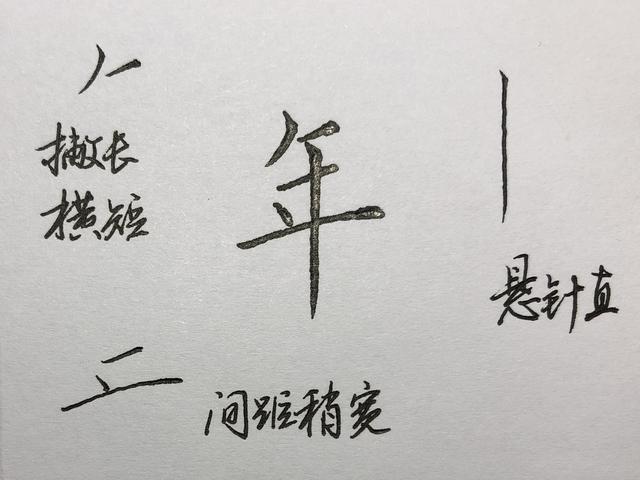 撇长
横短
年
悬针直
间距稍宽